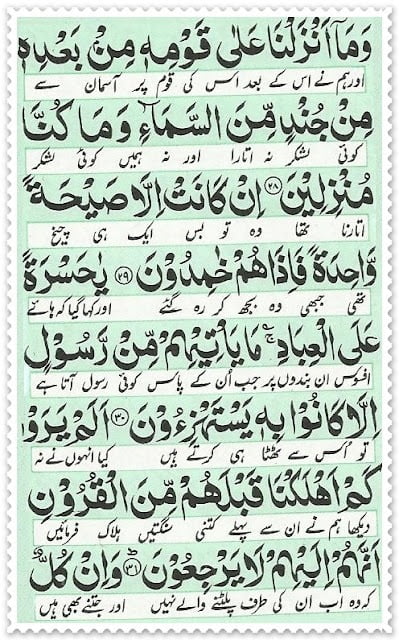 وَمَآ اَنْزَلْنَا عَلٰى قَوْمِهٖ مِنْۢ بَعْدِهٖ
اور ہم نے اس کے بعد اس کی قوم پر آسمان سے
مِنْ جُنْدٍ مِّنَ السَّمَآءِ وَمَا كُنَّا
کوئی لشکر نہ اتارا اور نہ ہمیں کوئی لشکر
مُنْزِلِيْنَ ۲۸ اِنْ كَانَتْ اِلَّا صَيْحَةً
اتارنا تھا وہ تو بس ایک ہی چیخ
وَّاحِدَةً فَاِذَا هُمْ خٰمِدُوْنَ ۲۹ يٰحَسْرَةً
تھی جبھی وہ بجھ کر رہ گئے اور کہا گیا کہ ہائے
عَلَى الْعِبَادِ ۚ مَا يَاْتِيْهِمْ مِّنْ رَّسُوْلٍ
افسوس ان بندوں پر جب اُن کے پاس کوئی رسول آتا ہے
اِلَّا كَانُوْا بِهٖ يَسْتَهْزِءُوْنَ ۳۰ اَلَمْ يَرَوْا
تو اُس سے ٹھٹا ہی کرتے ہیں کیا انہوں نے نہ
كَمْ اَهْلَكْنَا قَبْلَهُمْ مِّنَ الْقُرُوْنِ
دیکھا ہم نے ان سے پہلے کتنی سنگتیں ہلاک فرمائیں
اَنَّهُمْ اِلَيْهِمْ لَا يَرْجِعُوْنَ ؕ ۳۱ وَاِنْ كُلٌّ
کہ وہ اب ان کی طرف پلٹنے والے نہیں اور جتنے بھی ہیں